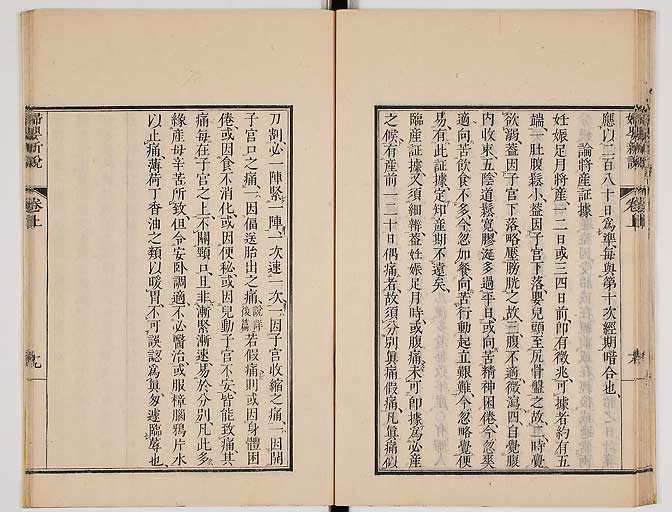 應以二百八十日爲準每與第十次經期暗合也
論將產証據
妊娠足月將產一二日或三四日前卽有徵兆可據者約有五
端一肚腹鬆小蓋因子宮下落嬰兒頭至尻骨盤之故二時覺
欲溺蓋因子宮下落略壓膀胱之故三腹不適微瀉四自覺腹
內收束五陰道鬆寬膠涎多過平日或向苦精神困倦今忽爽
適向苦飲食不多今忽加餐向苦行動起立艱難今忽略覺便
易有此証據定知產期不遠矣
臨產証據又須細辨蓋妊娠足月時或腹痛未可卽據爲必產
之候有產前一二十日偶痛者故須分別眞痛假痛凡眞痛似
婦嬰新說
卷上
刀割必一陣緊一陣一次速一次一因子宮收縮之痛一因開
子宮口之痛一因偪送胎出之痛說詳後篇若假痛則或因身體困
倦或因食不消化或因便秘或因兒動子宮不安皆能致痛其
痛每在子宮之上不關頸口且非漸緊漸速易於分別凡此多
緣產母辛苦所致但令安臥調適不必醫治或服樟腦鴉片水
以止痛薄荷丁香油之類以暖胃不可誤認爲眞匆遽臨蓐也
婦嬰新說
卷上
九